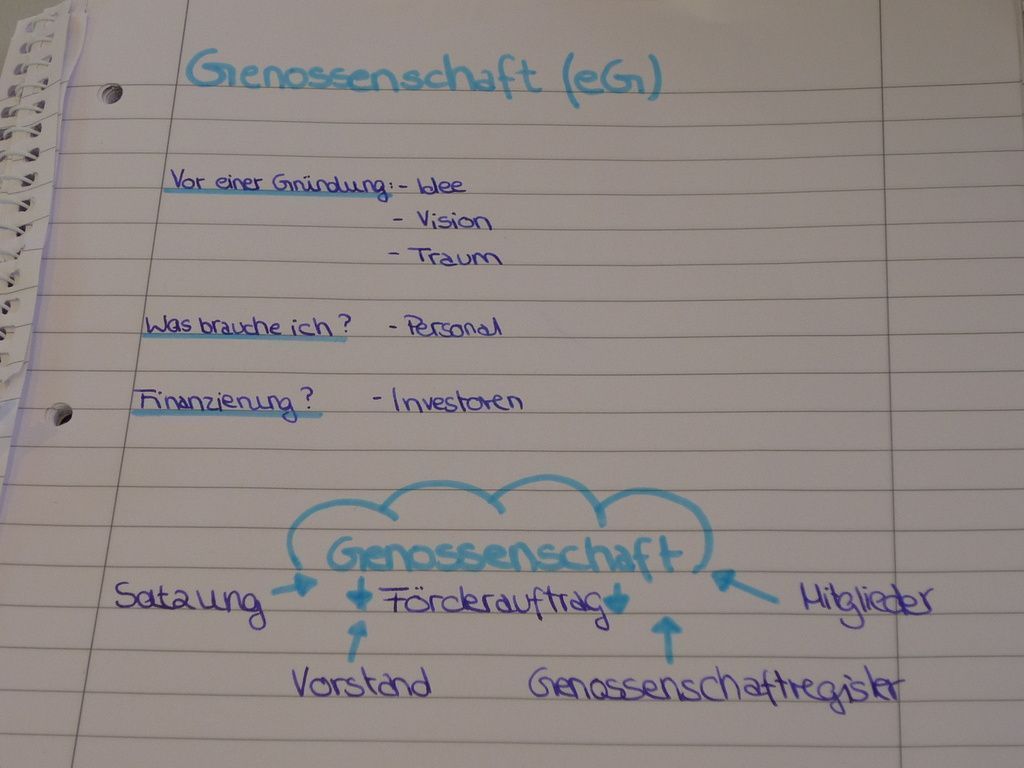 Genossenschaft (eG)
Vor einer Gründung: - Idee
- Vision
- Traum
Was brauche ich? - Personal
Finanzierung? - Investoren
Genossenschaft
Satzung Förderauftrag Mitglieder
Vorstand Genossenschaftregister